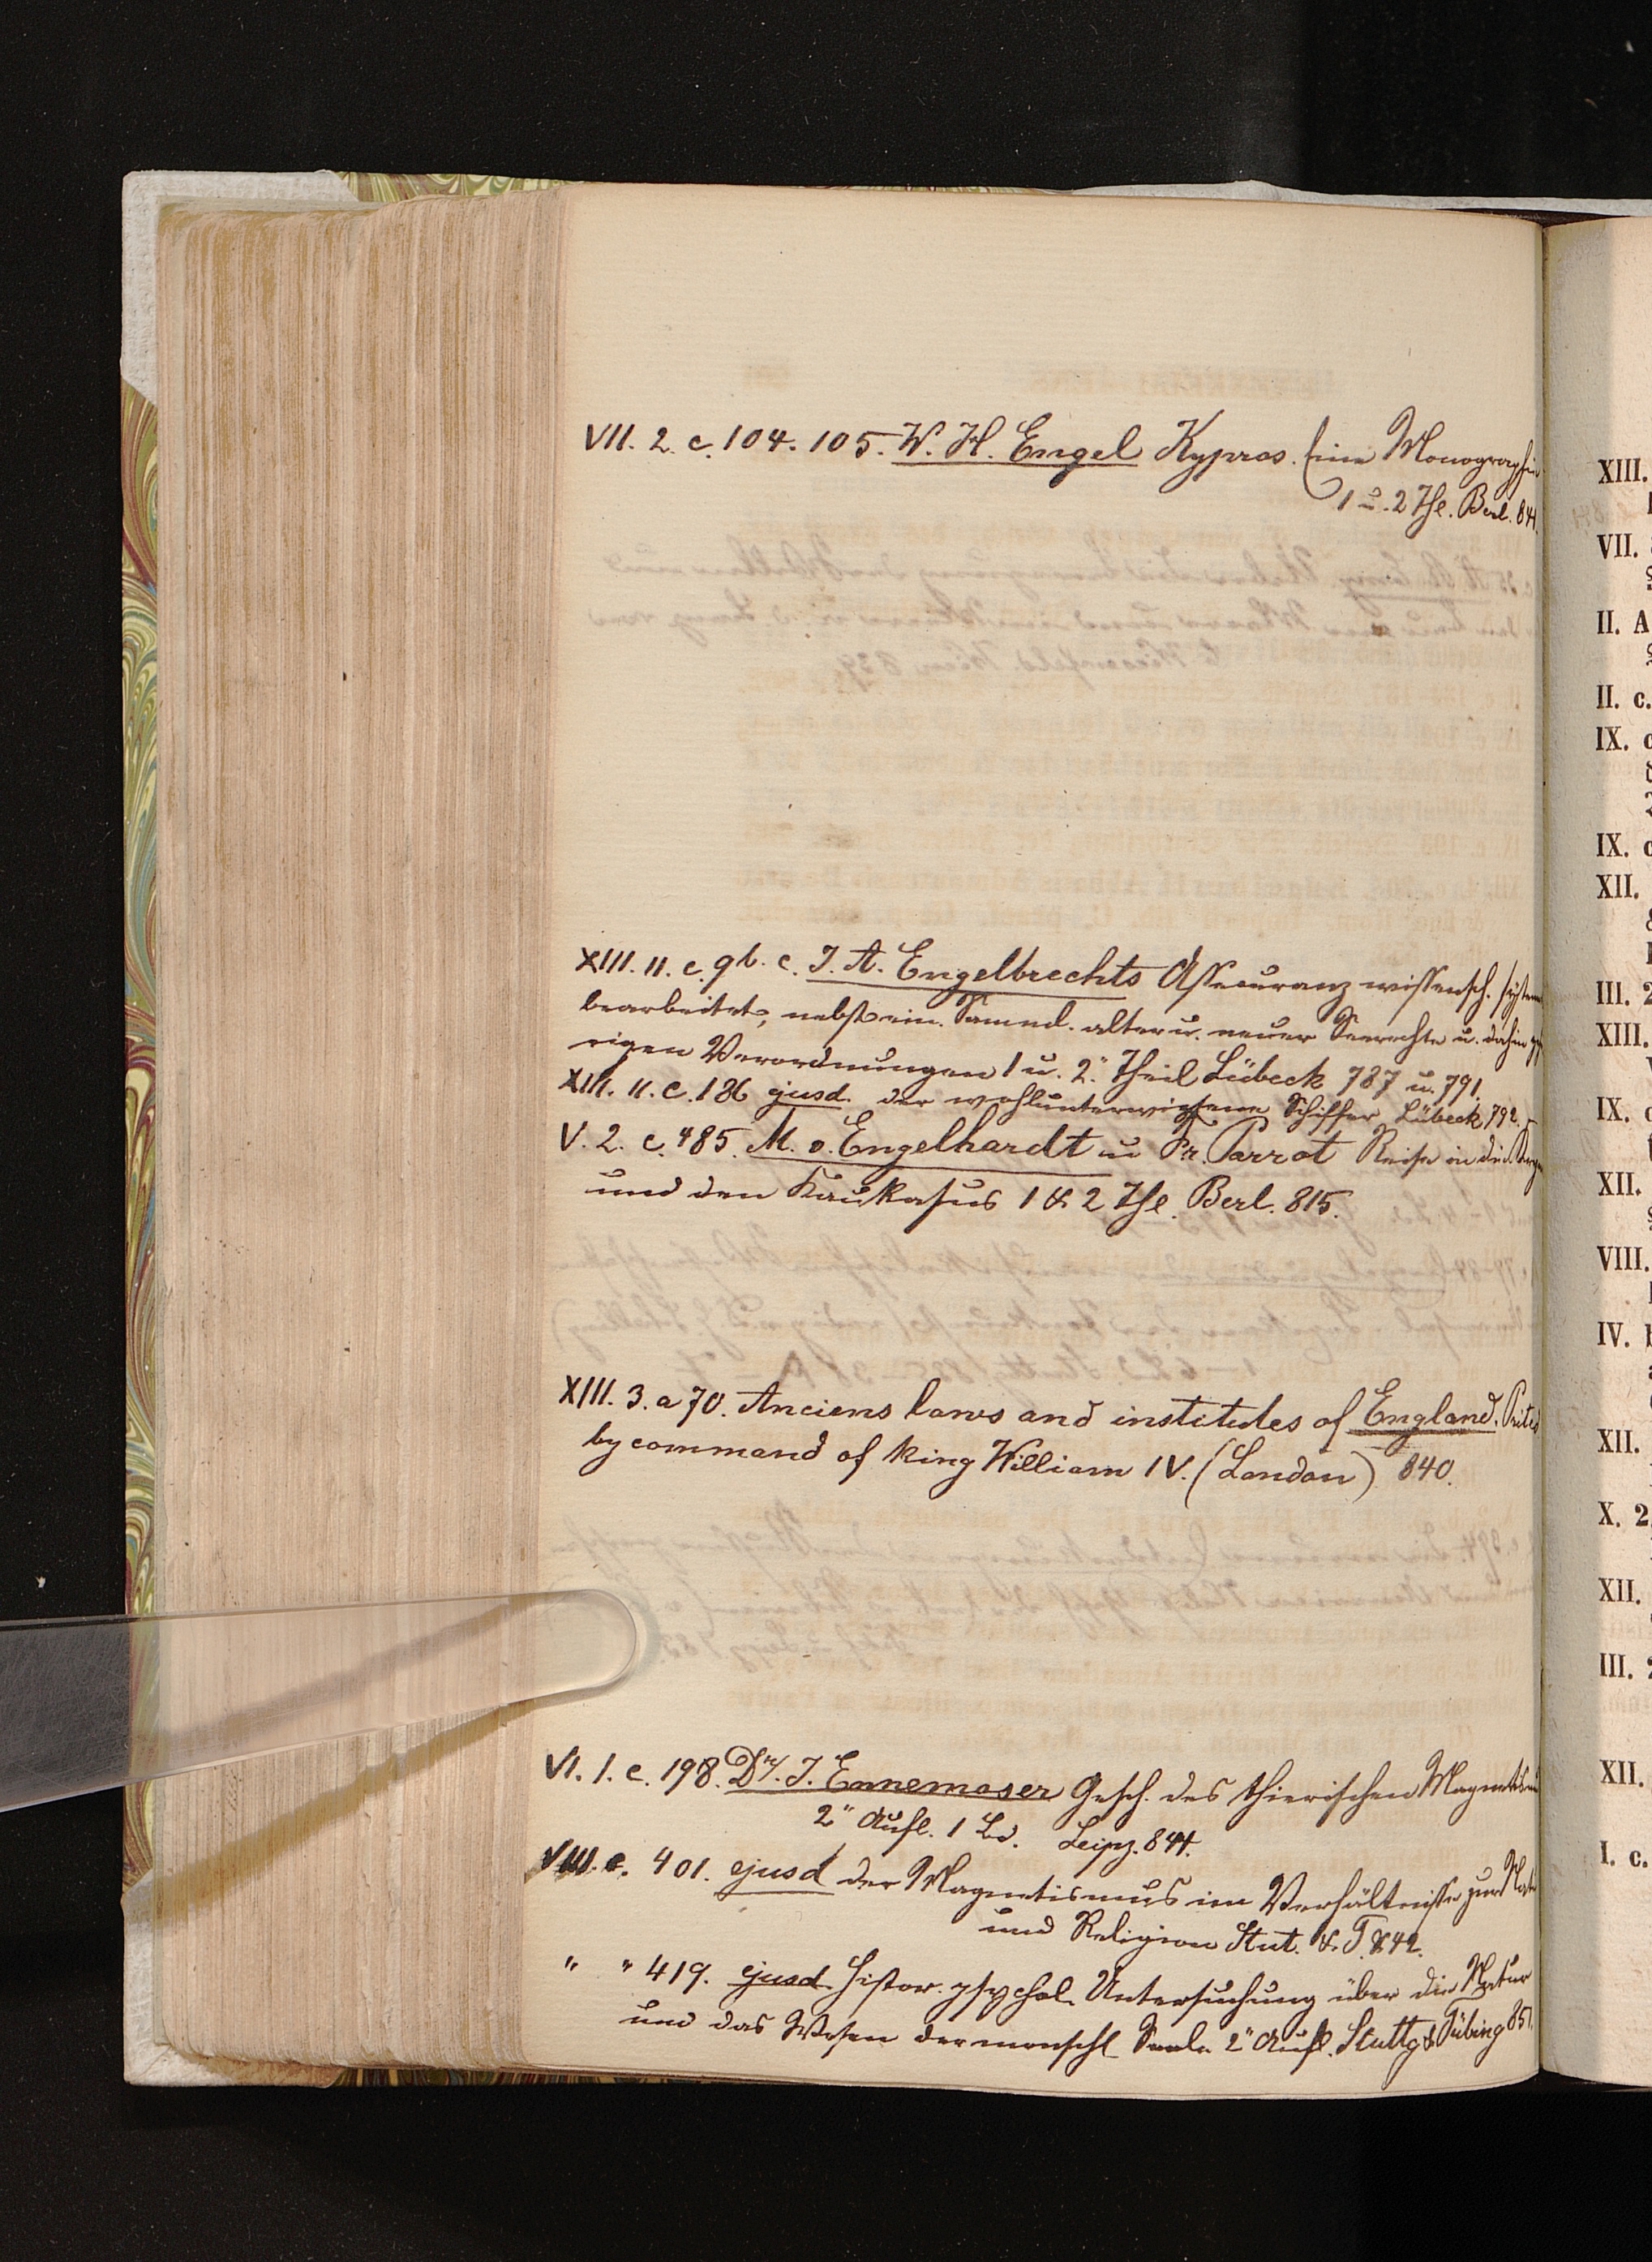 VII. 2. c. 104. 105. W. H. Engel Kypros. Eine Monographie
1 u. 2 Thl. Berl. 841.
XIII. 11. c. 96. c. J. A. Engelbrechts Assecuranz wissensch. system
bearbeitet, nebst ein. Samml. alter u. neuer Seerechte u. dahin
rigen Verordnungen 1 u. 2" Theil Lübeck 787 u. 791.
XIII. 11. c. 186 ejusd. der wohlunterwiesene Schiffer Lübeck 792.
V. 2. c. 485. M. v. Engelhardt u Fr. Parrot Reise in die Krym
und den Kaukasus 1 & 2 Thl. Berl. 815.
XIII. 3. a 70. Anciens laws and institutes of England. Prited
by command of king William IV. (London) 840.
VI. 1. c. 198. Dr. J. Ennemoser Gesch. des thierischen Magnetismus
2" Aufl. 1 Bd. Leipz. 844.
VIII. c. 401. ejusd der Magnetismus im Verhältnisse zur Natur
und Religion Stut. & T. 842.
" " 419. ejusd. Histor. psychol. Untersuchung über die Natur
und das Wesen der menschl Seele 2" Aufl. Stuttg & Tübing 851.
XIII.
VII.
II. A
II. c.
IX. c
IX. c
XII.
III. 2
XIII.
IX. c
XII.
VIII.
IV. b
XII.
X. 2
XII.
III. 2
XII.
I. c.